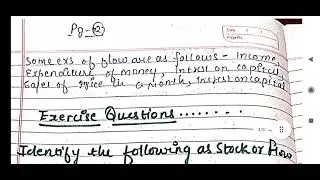 Pg-②
Date
Page No.
Some exs of flow are as follows - Income,
Expenditure of money, Intrest on capital,
Sales of rice in a month, intrest on capital
Exercise Questions.......
Identify the following as Stock or Flow